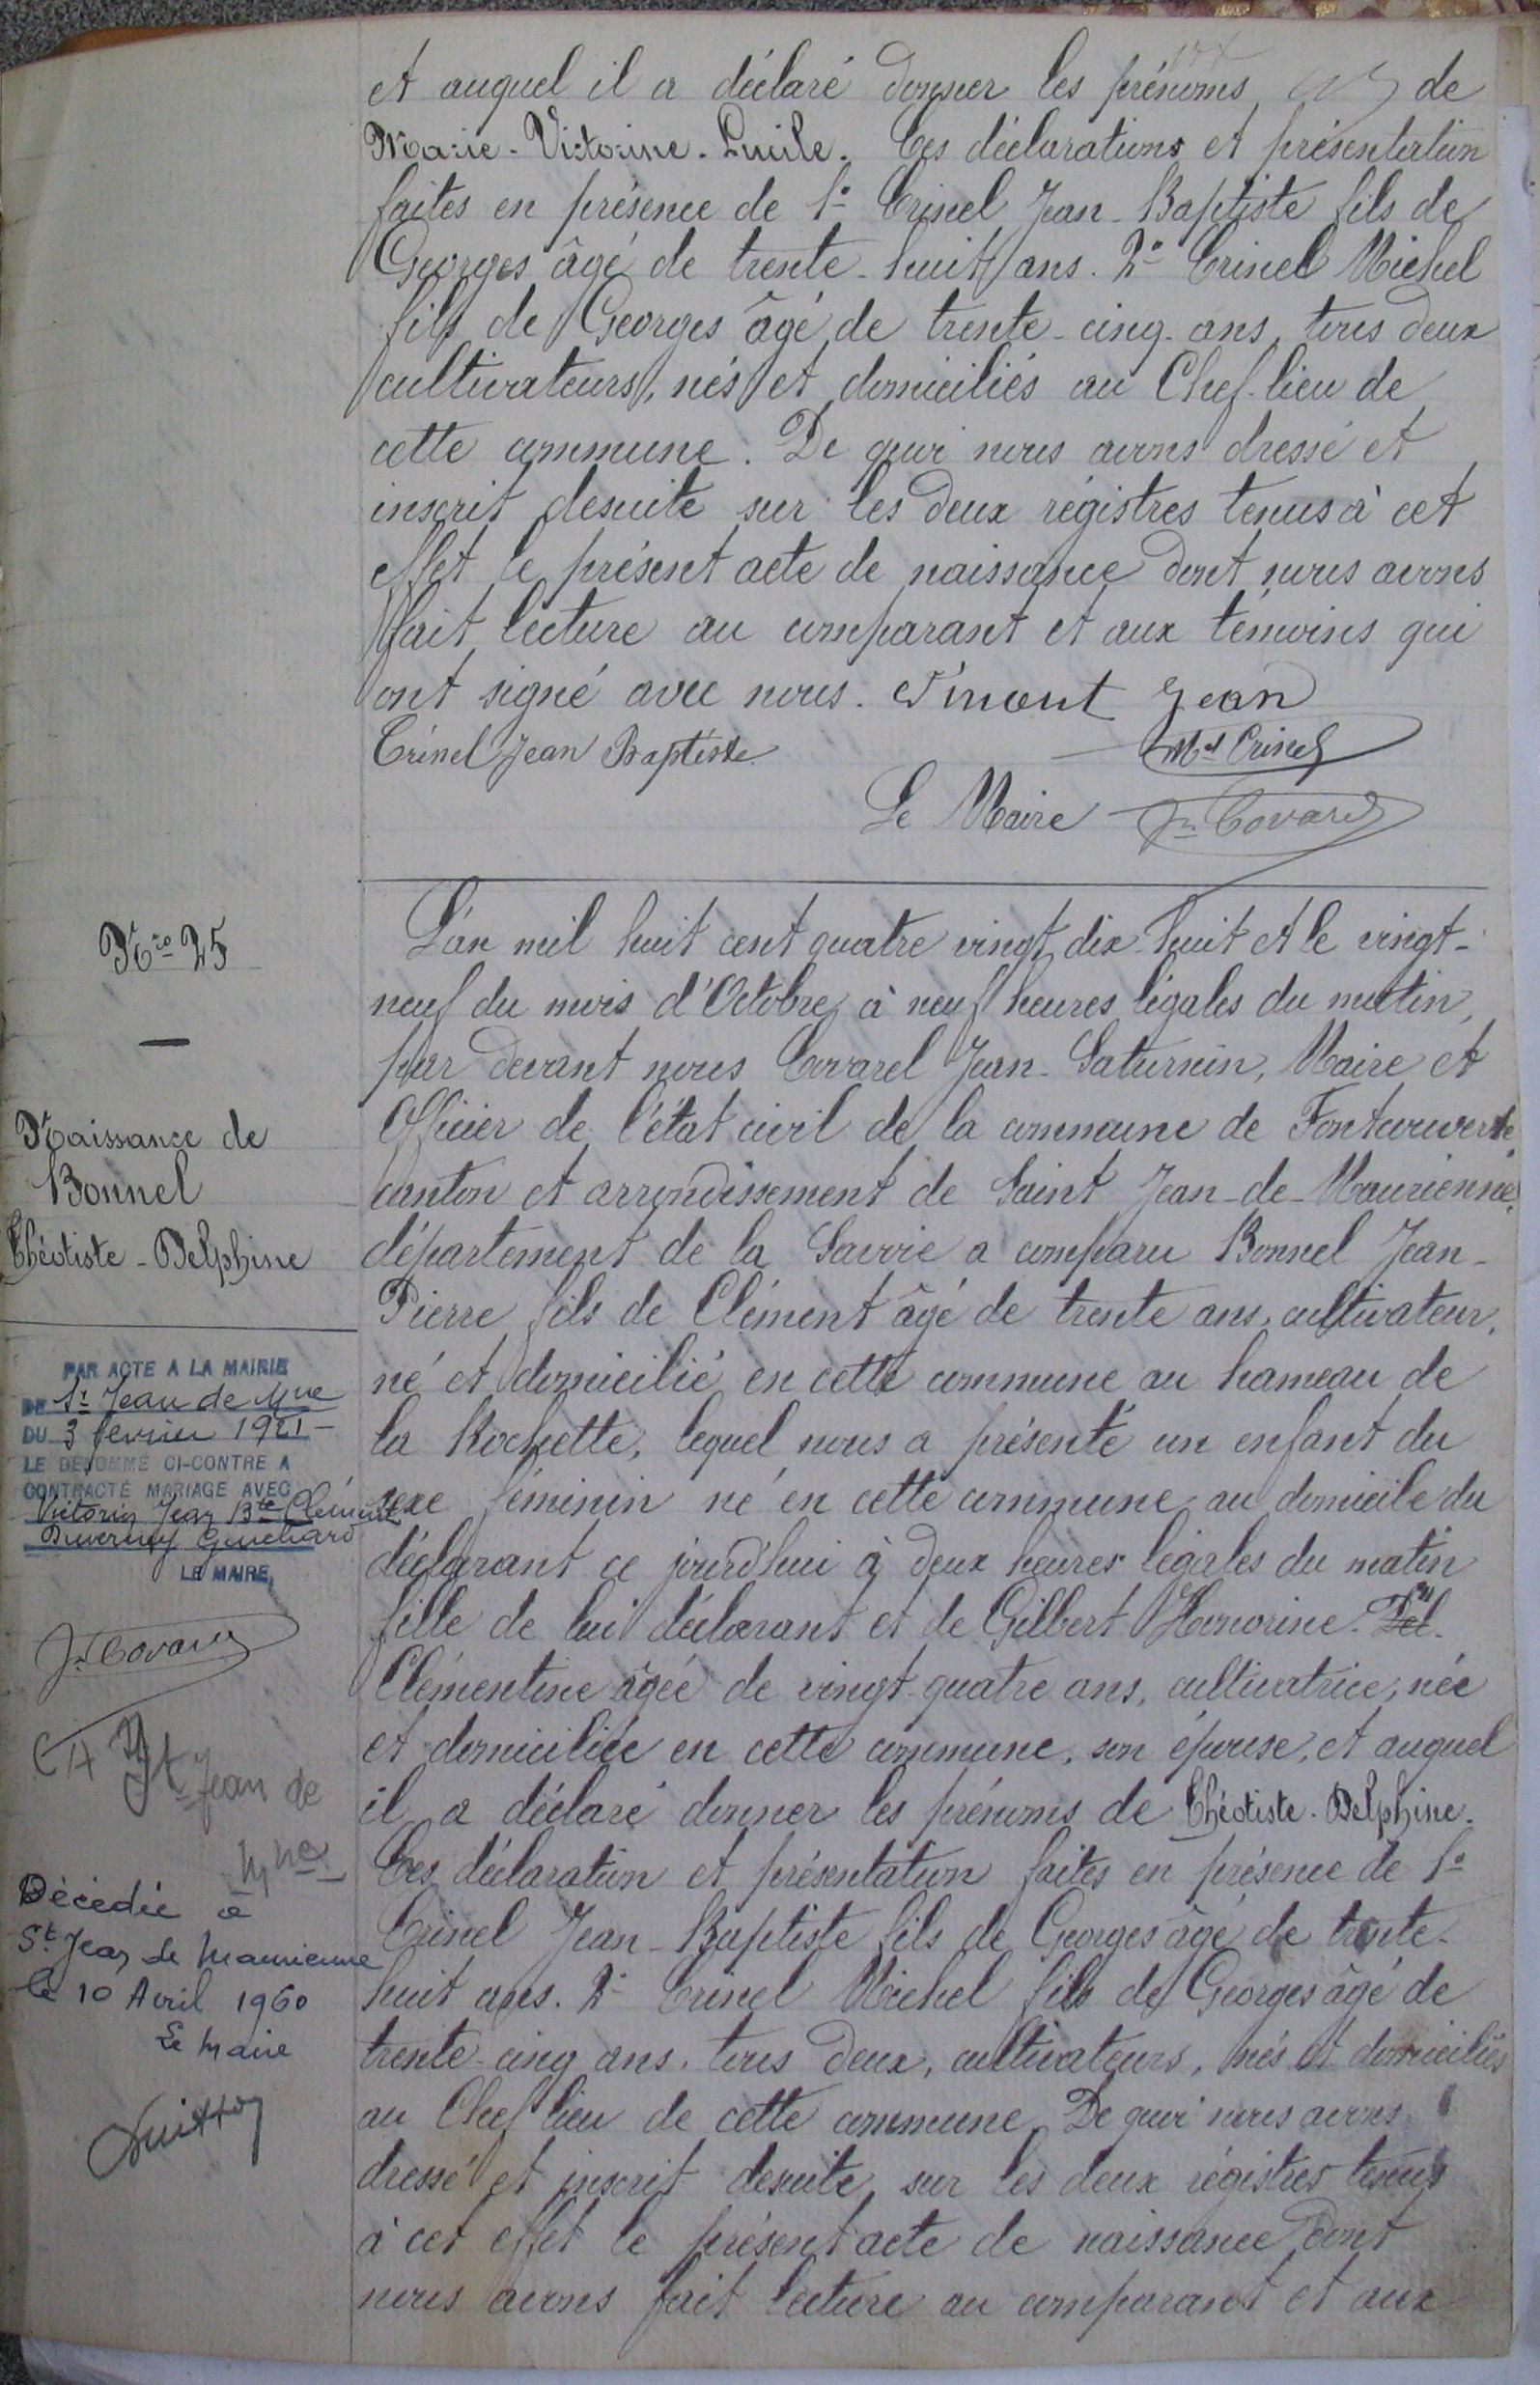 et auquel il a déclaré donner les prénoms de
Marie-Victorine-Lucile. Ces déclarations et présentation
faites en présence de 1° Crinel Jean-Baptiste fils de
Georges âgé de trente-huit ans. 2° Crinel Michel
fils de Georges âgé de trente-cinq-ans, tous deux
cultivateurs, nés et domiciliés au Chef-lieu de
cette commune. De quoi nous avons dressé et
inscrit desuite sur les deux régistres tenus à cet
effet le présent acte de naissance dont nous avons
fait lecture au comparant et aux témoins qui
ont signé avec nous. Jean
Crinel Jean Baptiste Mel Crinel
Le Maire Jn Covarel
Nro 25
Naissance de
Bonnel
Théotiste-Delphine
PAR ACTE A LA MAIRIE
DE St Jean de Mne
DU 3 février 1921
LE DÉNOMMÉ CI-CONTRE A
CONTRACTÉ MARIAGE AVEC
Victorin Jean Bte Clément
Duverney Guichard
LE MAIRE,
Jn Covarel
St Jean de
Mne
Décédée à
St Jean de Maurienne
le 10 Avril 1960
Le Maire
L'an mil huit cent quatre vingt dix-huit et le vingt-
neuf du mois d'Octobre, à neuf heures légales du matin,
par devant nous Covarel Jean-Saturnin, Maire et
Officier de l'état civil de la commune de Fontcouverte,
canton et arrondissement de Saint Jean-de-Maurienne,
département de la Savoie a comparu Bonnel Jean-
Pierre fils de Clément âgé de trente ans, cultivateur,
né et domicilié en cette commune au hameau de
la Rochette, lequel nous a présenté un enfant du
sexe féminin né en cette commune au domicile du
déclarant ce jourd'hui à deux heures légales du matin
fille de lui déclarant et de Gilbert Honorine-Del-
Clémentine âgée de vingt-quatre ans, cultivatrice, née
et domiciliée en cette commune, son épouse, et auquel
il a déclaré donner les prénoms de Théotiste-Delphine.
Ces déclaration et présentation faites en présence de 1°
Crinel Jean-Baptiste fils de Georges âgé de trente-
huit ans. 2° Crinel Michel fils de Georges âgé de
trente-cinq ans, tous deux, cultivateurs, nés et domiciliés
au Chef lieu de cette commune. De quoi nous avons
dressé et inscrit desuite sur les deux régistres tenus
à cet effet le présent acte de naissance dont
nous avons fait lecture au comparant et aux